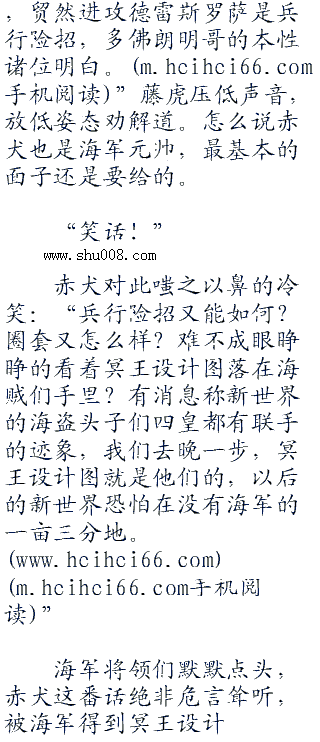 ，贸然进攻德雷斯罗萨是兵
行险招，多佛朗明哥的本性
诸位明白。(m.hcihci66.com
手机阅读)”藤虎压低声音，
放低姿态劝解道。怎么说赤
犬也是海军元帅，最基本的
面子还是要给的。
“笑话！”
www.shu008.com
赤犬对此嗤之以鼻的冷
笑：“兵行险招又能如何？
圈套又怎么样？难不成眼睁
睁的看着冥王设计图落在海
贼们手里？有消息称新世界
的海盗头子们四皇都有联手
的迹象，我们去晚一步，冥
王设计图就是他们的，以后
的新世界恐怕在没有海军的
一亩三分地。
(www.hcihci66.com)
(m.hcihci66.com手机阅
读)”
海军将领们默默点头，
赤犬这番话绝非危言耸听，
被海军得到冥王设计